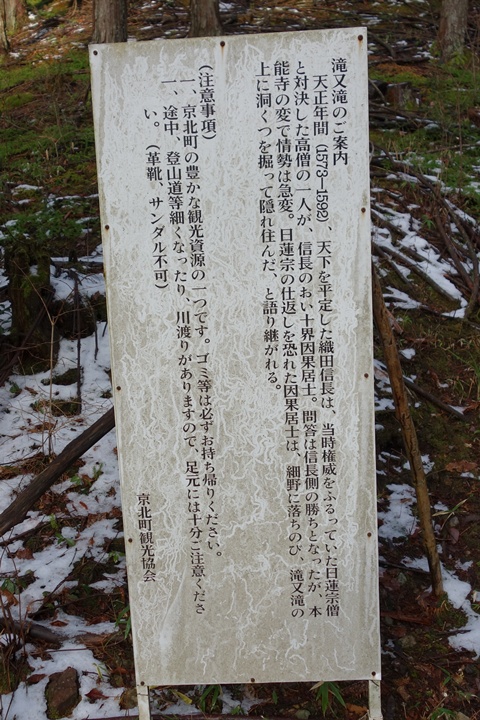 滝又滝のご案内
天正年間（1573―1592）、天下を平定した織田信長は、当時権威をふるっていた日蓮宗僧
と対決した高僧の一人が、信長のおい十界因果居士。問答は信長側の勝ちとなったが、本
能寺の変で情勢は急変。日蓮宗の仕返しを恐れた因果居士は、細野に落ちのび、滝又滝の
上に洞くつを掘って隠れ住んだ、と語り継がれる。
（注意事項）
一、京北町の豊かな観光資源の一つです。ゴミ等は必ずお持ち帰りください。
一、途中、登山道等細くなったり、川渡りがありますので、足元には十分ご注意くださ
い。（革靴、サンダル不可）
京北町観光協会